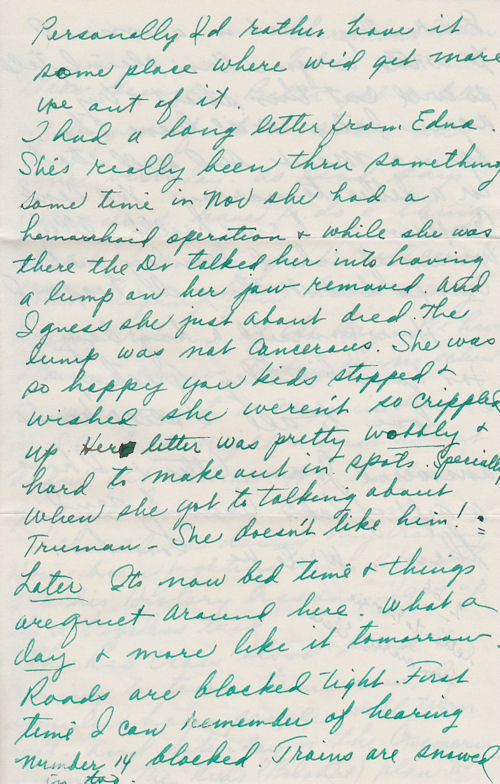 Personally I'd rather have it
some place where we'd get more
use out of it.
I had a long letter from Edna.
She's really been thru something
some time in Nov she had a
hemorrhoid operation & while she was
there the Dr talked her into having
a lump on her jaw removed. and
I guess she just about died. The
lump was not cancerous. She was
so happy you kids stopped &
wished she weren't so crippled
up Her letter was pretty wobbly &
hard to make out in spots. Specially
when she got to talking about
Truman - She doesn't like him!
Later Its now bed time & things
are quiet around here. What a
day & more like it tomorrow.
Roads are blocked tight. First
time I can remember of hearing
number 14 blocked. Trains are snowed
in too.